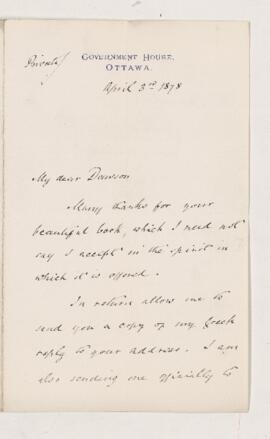 Private/
GOVERNMENT HOUSE,
OTTAWA.
April 3rd 1878
My dear Dawson
Many thanks for your
beautiful book, which I need not
say I accept in the spirit in
which it is offered.
In return allow me to
send you a copy of my Greek
reply to your address. I am
also sending one officially to